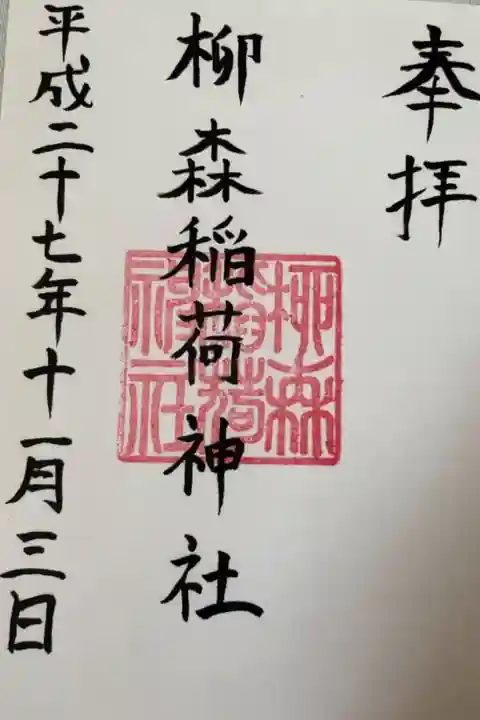 奉拝
柳森稲荷神社
柳森
稲荷
神社
平成二十七年十一月三日